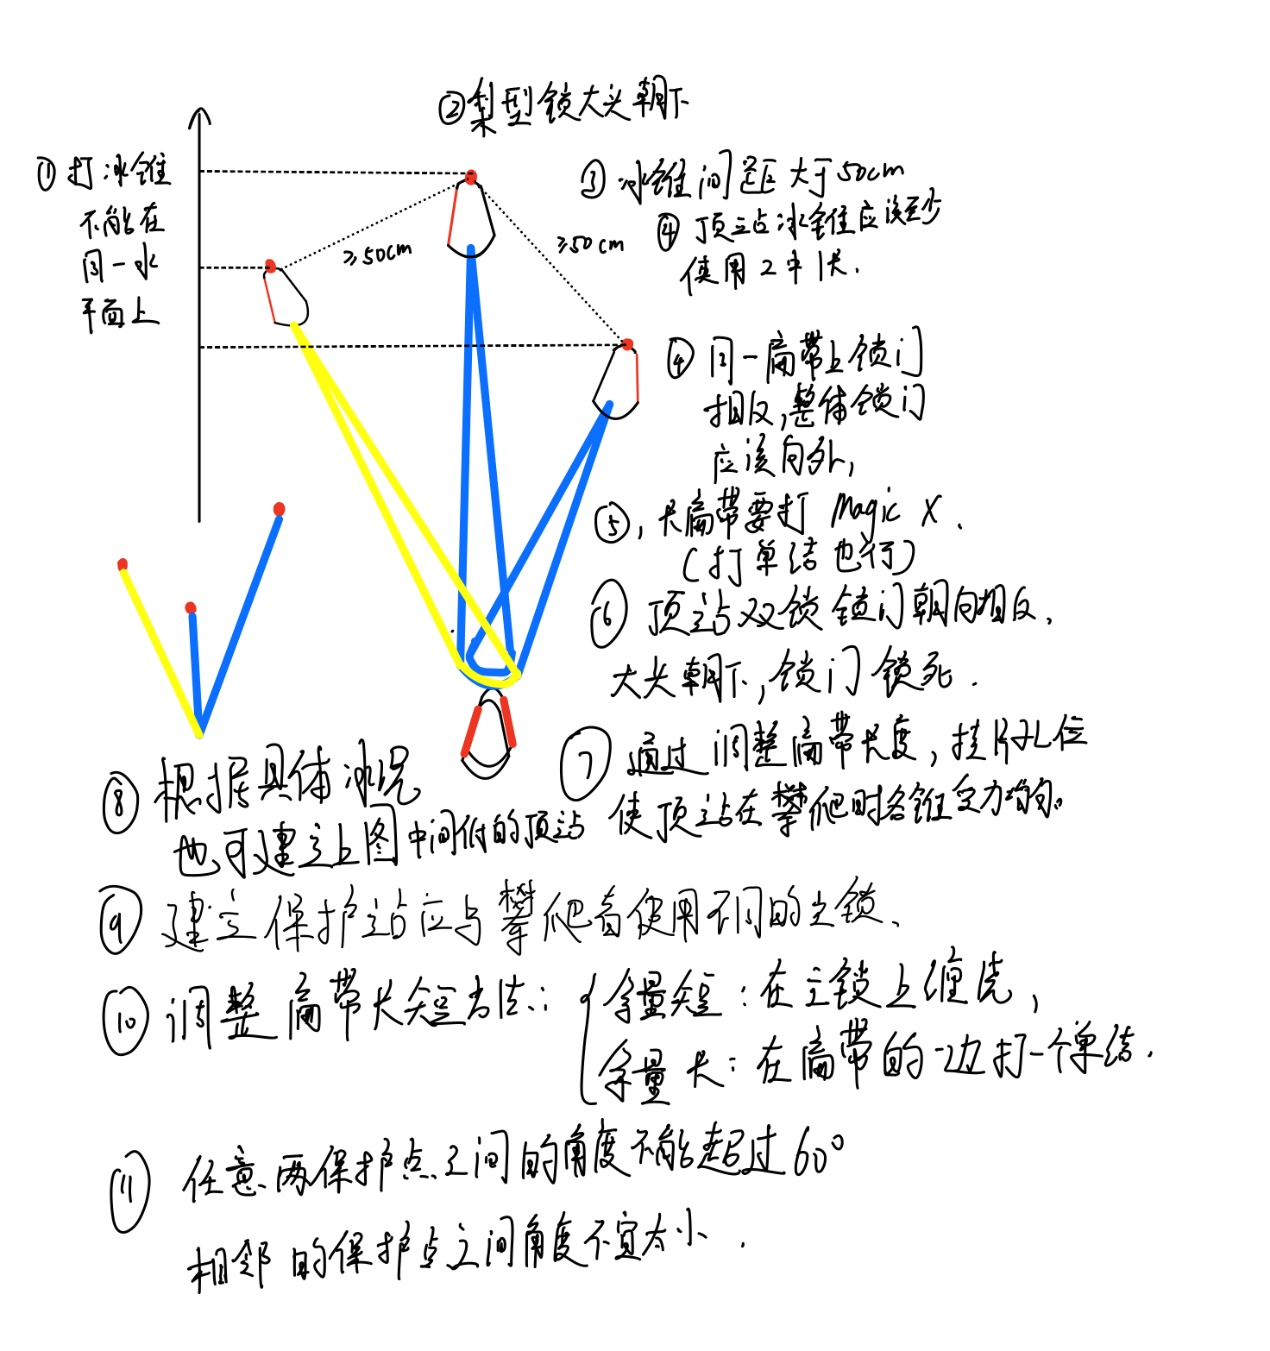 ②梨型锁大头朝下
①打冰锥
不能在
同一水
平面上
③冰锥间距大于50cm
④顶站冰锥应该至少
使用2中1长.
≥50cm
≥50cm
④同一扁带上锁门
相反,整体锁门
应该向外,
⑤,长扁带要打 Magic X.
(打单结也行)
⑥顶站双锁锁门朝向相反,
大头朝下,锁门锁死.
⑦通过调整扁带长度,挂片孔位
使顶站在攀爬时各锥受力均匀。
⑧根据具体冰况
也可建立上图中间低的顶站
⑨建立保护站应与攀爬者使用不同的主锁、
⑩调整扁带长短方法:
余量短:在主锁上缠绕,
余量长:在扁带的一边打一个单结.
⑪任意两保护点之间的角度不能超过60°
相邻的保护点之间角度不宜太小.